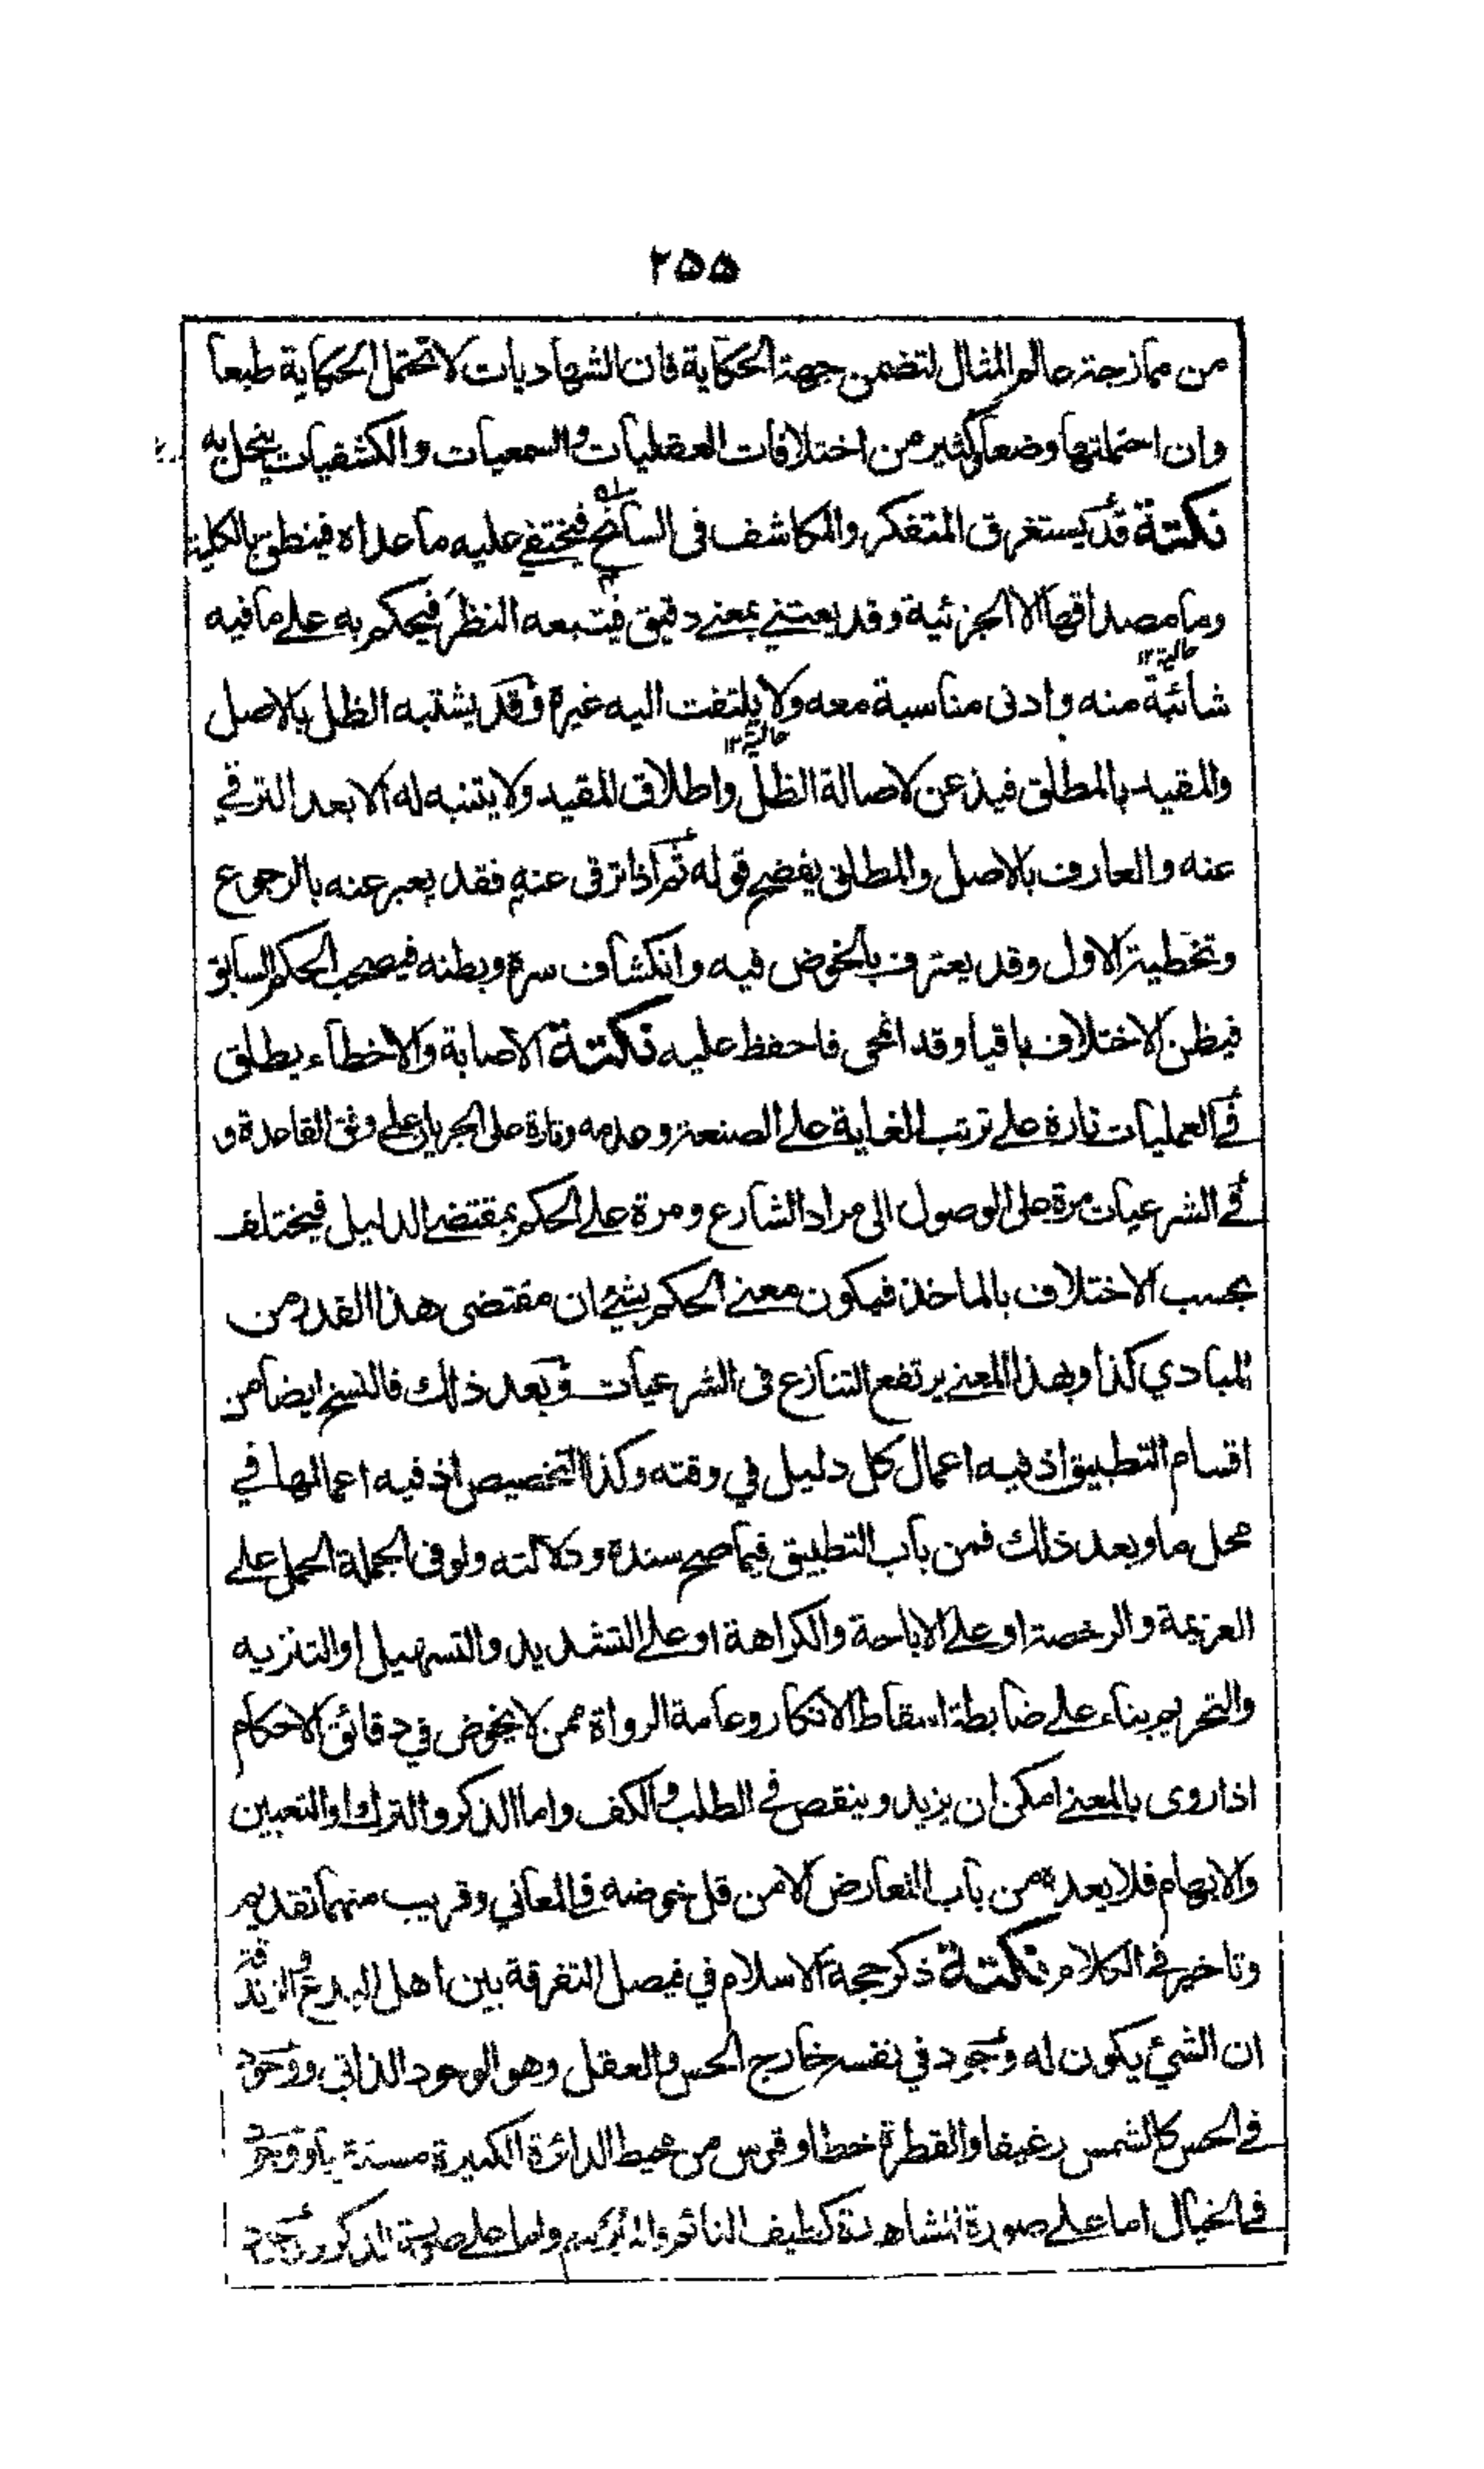 ٢٥٥
من ممازجة عالم المثال لتضمن جهة الحكاية فان الشهاديات لا تحتمل الحكاية طبعا
وان احتملتها وضعا وكثير من اختلافات العقليات والسمعيات والكشفيات ينحل به
نكتة قد يستغرق المتفكر والمكاشف فى السانح فيختفي عليه ما عداه فينطق بالكلية
وما مصداقها الا الجزئية وقد يعتني بمعنى دقيق فيتبعه النظر فيحكم به على ما فيه
حالية ١٢
شائبة منه وادنى مناسبة معه ولا يلتفت اليه غيره وقد يشتبه الظل بالاصل
حالية ١٢
والمقيد بالمطلق فيذعن لاصالة الظل واطلاق المقيد ولا يتنبه له الا بعد الترقي
عنه والعارف بالاصل والمطلق يفضح قوله ثم اذا ترقى عنه فقد يعبر عنه بالرجوع
وتخطية الاول وقد يعترف بالخوض فيه وانكشاف سره وبطنه فيصحب الحكم السابق
فيظن الاختلاف باقيا وقد انمحى فاحفظ عليه نكتة الاصابة والاخطاء يطلق
في العمليات تارة على ترتب الغاية على الصنعة وعدمه وتارة على الجريان على وفق القاعدة و
في الشرعيات مرة على الوصول الى مراد الشارع ومرة على الحكم بمقتضى الدليل فيختلف
بحسب الاختلاف بالماخذ فيكون معنى الحكم بشئ ان مقتضى هذا القدر من
المبادي كذا وبهذا المعنى يرتفع التنازع فى الشرعيات وبعد ذلك فالنسخ ايضا من
اقسام التطبيق اذ فيه اعمال كل دليل في وقته وكذا التخصيص اذ فيه اعمالها في
محل ما وبعد ذلك فمن باب التطبيق فيما صح سنده ودلالته ولو فى الجملة الحمل على
العزيمة والرخصة او على الاباحة والكراهة او على التشديد والتسهيل او التنزيه
والتحريم بناء على ضابطة اسقاط الانكار وعامة الرواة ممن لا يخوض في دقائق الاحكام
اذا روى بالمعنى امكن ان يزيد وينقص في الطلب والكف واما الذكر والترك او التعيين
والابهام فلا يعده من باب التعارض الا من قل خوضه في المعاني وقريب منهما تقديم
وتاخير في الكلام نكتة ذكر حجة الاسلام في فيصل التفرقة بين اهل البدع والزندقة
ان الشئ يكون له وجود في نفسه خارج الحس والعقل وهو الوجود الذاتي ووجود
في الحس كالشمس رغيفا والقطرة خطا وقوس من محيط الدائرة الكبيرة مستقيما ووجود
في الخيال اما على صورة المشاهدة كطيف النائم والمبرسم واما على صورة التذكر ووجود